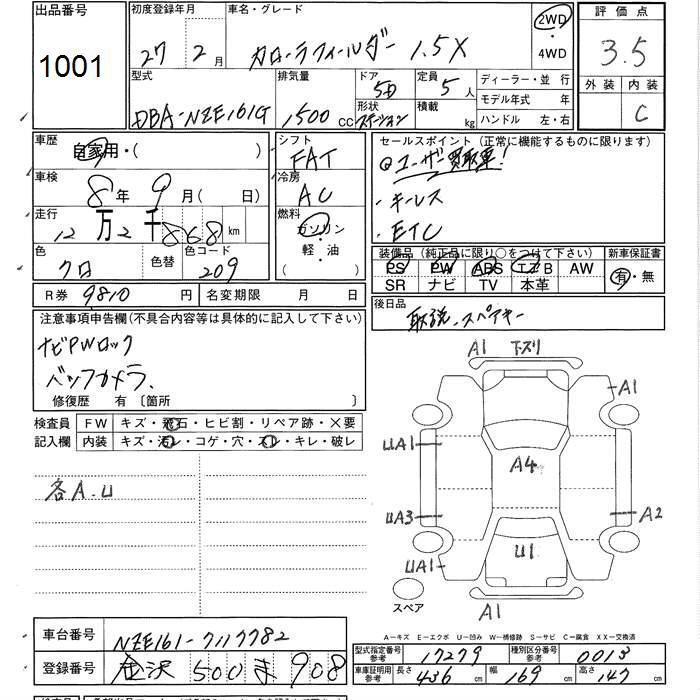 出品番号 1001
初度登録年月 27年 2月
車名・グレード カローラフィールダー 1.5X
2WD・4WD
評価点 3.5
外装 内装 C
型式 DBA-NZE161G
排気量 1500 CC
ドア 5D
形状 ステーション
定員 5 人
積載 kg
ディーラー・並 行
モデル年式 年
ハンドル 左・右
車歴 自家用・( )
シフト FAT
セールスポイント (正常に機能するものに限ります)
◎ユーザー買取車!
・キーレス
・ETC
車検 8年 9月( 日)
冷房 AC
走行 12万2千868km
燃料 ガソリン・軽・油 ( )
色 クロ
色替
色コード 209
装備品 (純正品に限り○をつけて下さい)
PS PW ABS エアB AW
SR ナビ TV 本革
新車保証書 有・無
R券 9810 円
名変期限 月 日
後日品 取説、スペアキー
注意事項申告欄(不具合内容等は具体的に記入して下さい)
ナビPWロック
バックカメラ、
修復歴 有 〔箇所 〕
検査員記入欄
FW キズ・飛石・ヒビ割・リペア跡・×要
内装 キズ・汚レ・コゲ・穴・スレ・キレ・破レ
各A.U
A1 下スリ
A1
UA1
A4
UA3
A2
U1
UA1
A1
スペア
A-キズ E-エクボ U-凹み W-補修跡 S-サビ C-腐食 XX-交換済
車台番号 NZE161-7117782
登録番号 金沢 500 ま 908
型式指定番号 参考 17279
種別区分番号 参考 0013
車庫証明用 参考 長さ 436 cm 幅 169 cm 高さ 147 cm